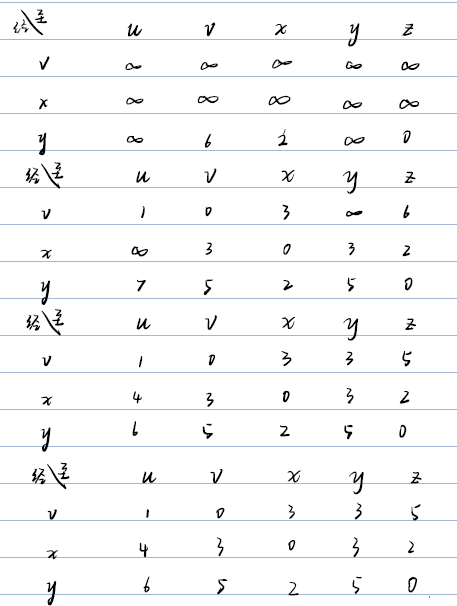 经\至 u v x y z
v ∞ ∞ ∞ ∞ ∞
x ∞ ∞ ∞ ∞ ∞
y ∞ 6 2 ∞ 0
经\至 u v x y z
v 1 0 3 ∞ 6
x ∞ 3 0 3 2
y 7 5 2 5 0
经\至 u v x y z
v 1 0 3 3 5
x 4 3 0 3 2
y 6 5 2 5 0
经\至 u v x y z
v 1 0 3 3 5
x 4 3 0 3 2
y 6 5 2 5 0